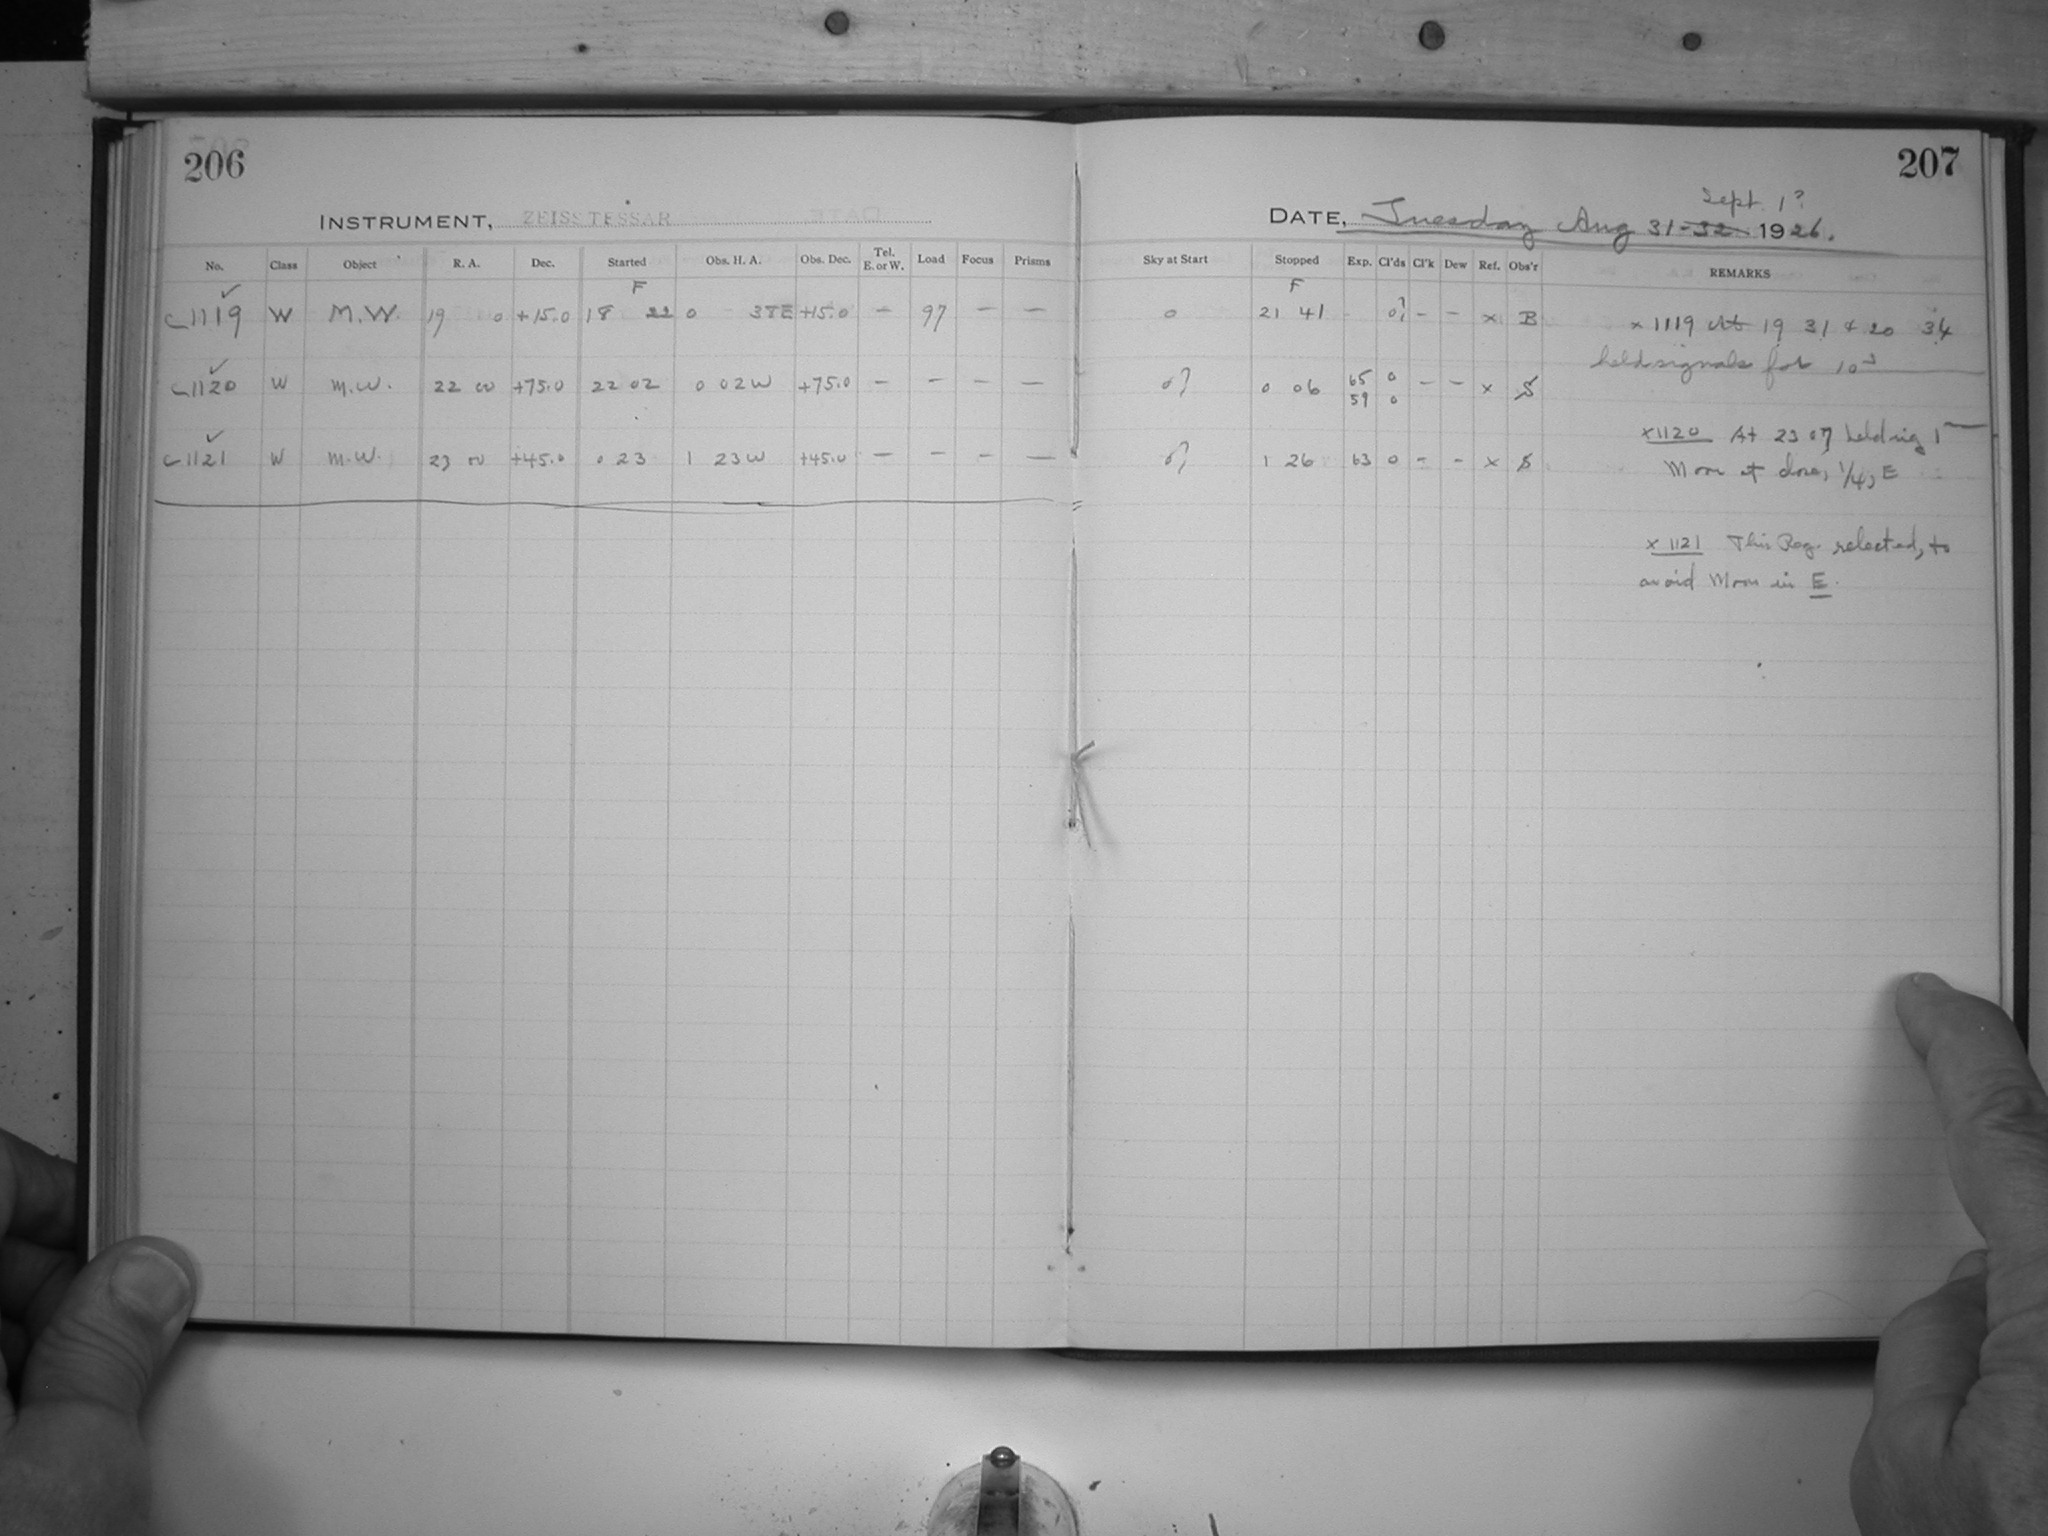 206
INSTRUMENT, ZEISS TESSAR
No. Class Object R. A. Dec. Started Obs. H. A. Obs. Dec. Tel. E. or W. Load Focus Prisms
F
1119 W M.W. 19 0 +15.0 18 22 0 38E +15.0 — 97 — —
1120 W M.W. 22 00 +75.0 22 02 0 02W +75.0 — — — —
1121 W M.W. 23 00 +45.0 0 23 1 23W +45.0 — — — —
207
Sept 1?
DATE, Tuesday Aug 31-32 1926.
Sky at Start Stopped Exp. Cl'ds Cl'k Dew Ref. Obs'r REMARKS
F
0 21 41 - 0? - - x B x 1119 At 19 31 & 20 34
held signals for 10
0? 0 06 65 0 - - x S
59 0
x1120 At 23 07 holding 1
Moon at close, 1/4, E
0? 1 26 63 0 - - x S
x 1121 This Reg. selected, to
avoid Moon in E.